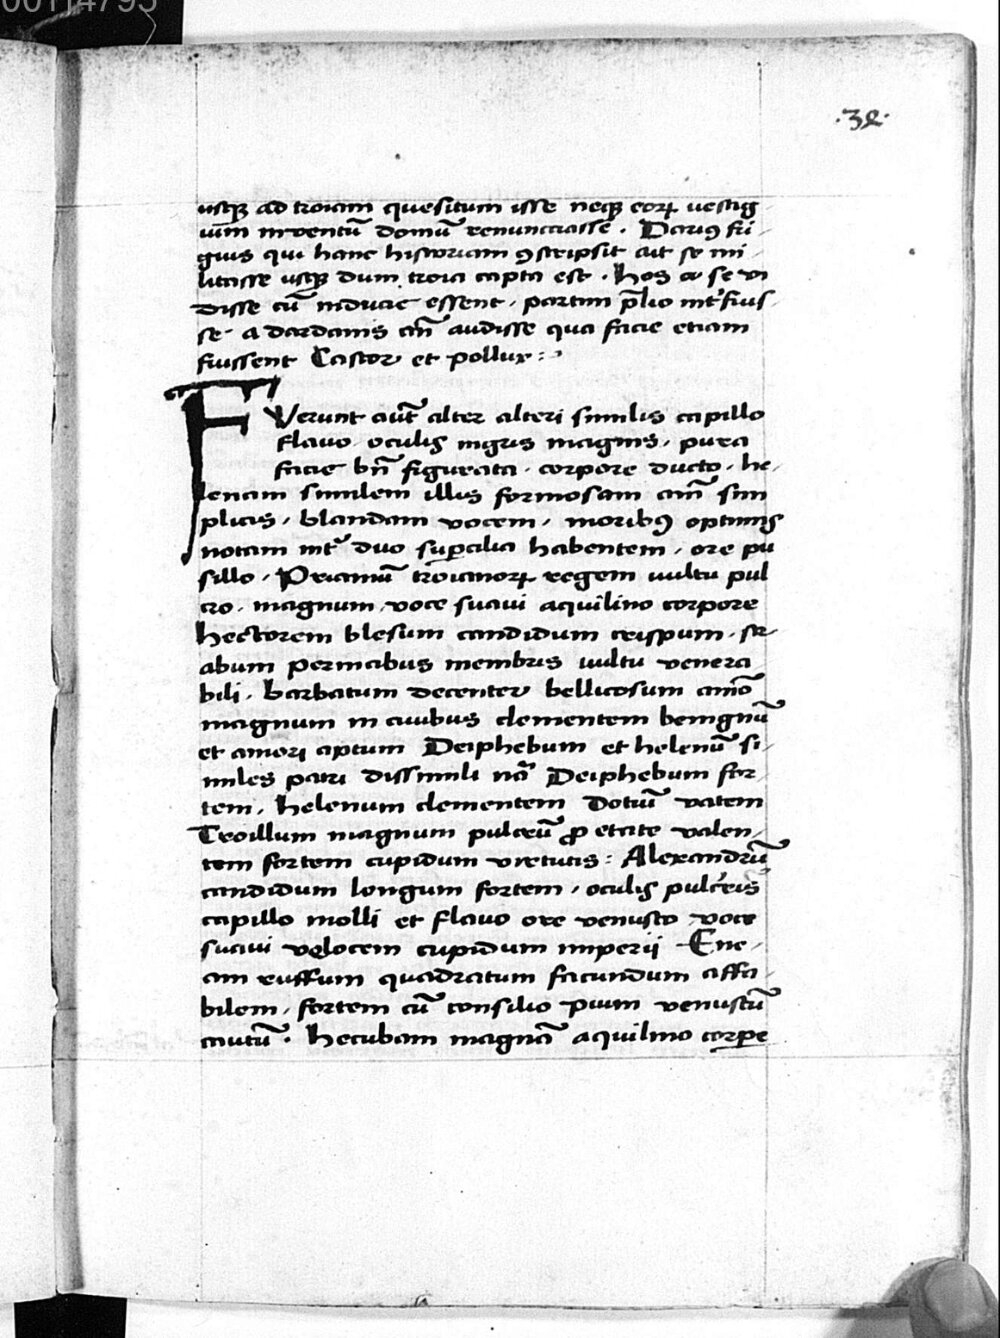 00114795
.32.
usqꝫ ad troiam quesitum isse neqꝫ eoꝝ uestig
uim inventū domū renunciasse . Dariꝰ fri
gius qui hanc historiam ꝯscripsit ait se mi
litasse usqꝫ dum troia capta est . hos a se vi
disse cū induciae essent , partim p̄lio int̄fuis
se . a dardanis aū audisse qua facie etiam
fuissent Castor et pollux :
FVerunt aut̄ alter alteri similis capillo
flavo . oculis nigris magnis , pura
facie bn̄ figurata . corpore ducto . he
lenam similem illis formosam aī sim
plicis , blandam vocem , moribꝰ optimis
notam int̄ duo suꝑcilia habentem , ore pu
sillo . Priamū troianoꝝ regem uultu pul
cro . magnum , voce suaui aquilino corpore
hectorem blesum candidum crispum . st
abum pernicibus membris uultu venera
bili . barbatum decenter bellicosum aīo
magnum in ciuibus clementem benignū
et amori aptum Deiphebum et helenū si
miles patri dissimili nā Deiphebum for
tem , helenum clementem Dotū vatem
Troillum magnum pulcrū ꝓ etate valen
tem fortem cupidum virtutis : Alexandrū
candidum longum fortem , oculis pulcris
capillo molli et flavo ore venusto voce
suaui velocem cupidum imperij Ene
am ruffum quadratum facundum affa
bilem , fortem cū consilio pium venustū
cautū . hecubam magnā aquilino corꝑe